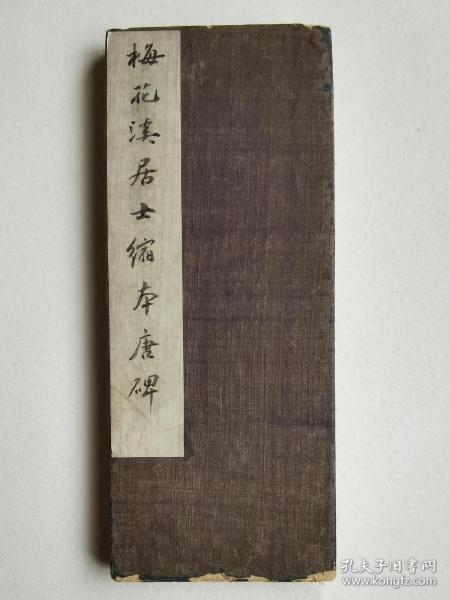 梅花溪居士縮本唐碑
孔夫子旧书网
www.kongfz.com